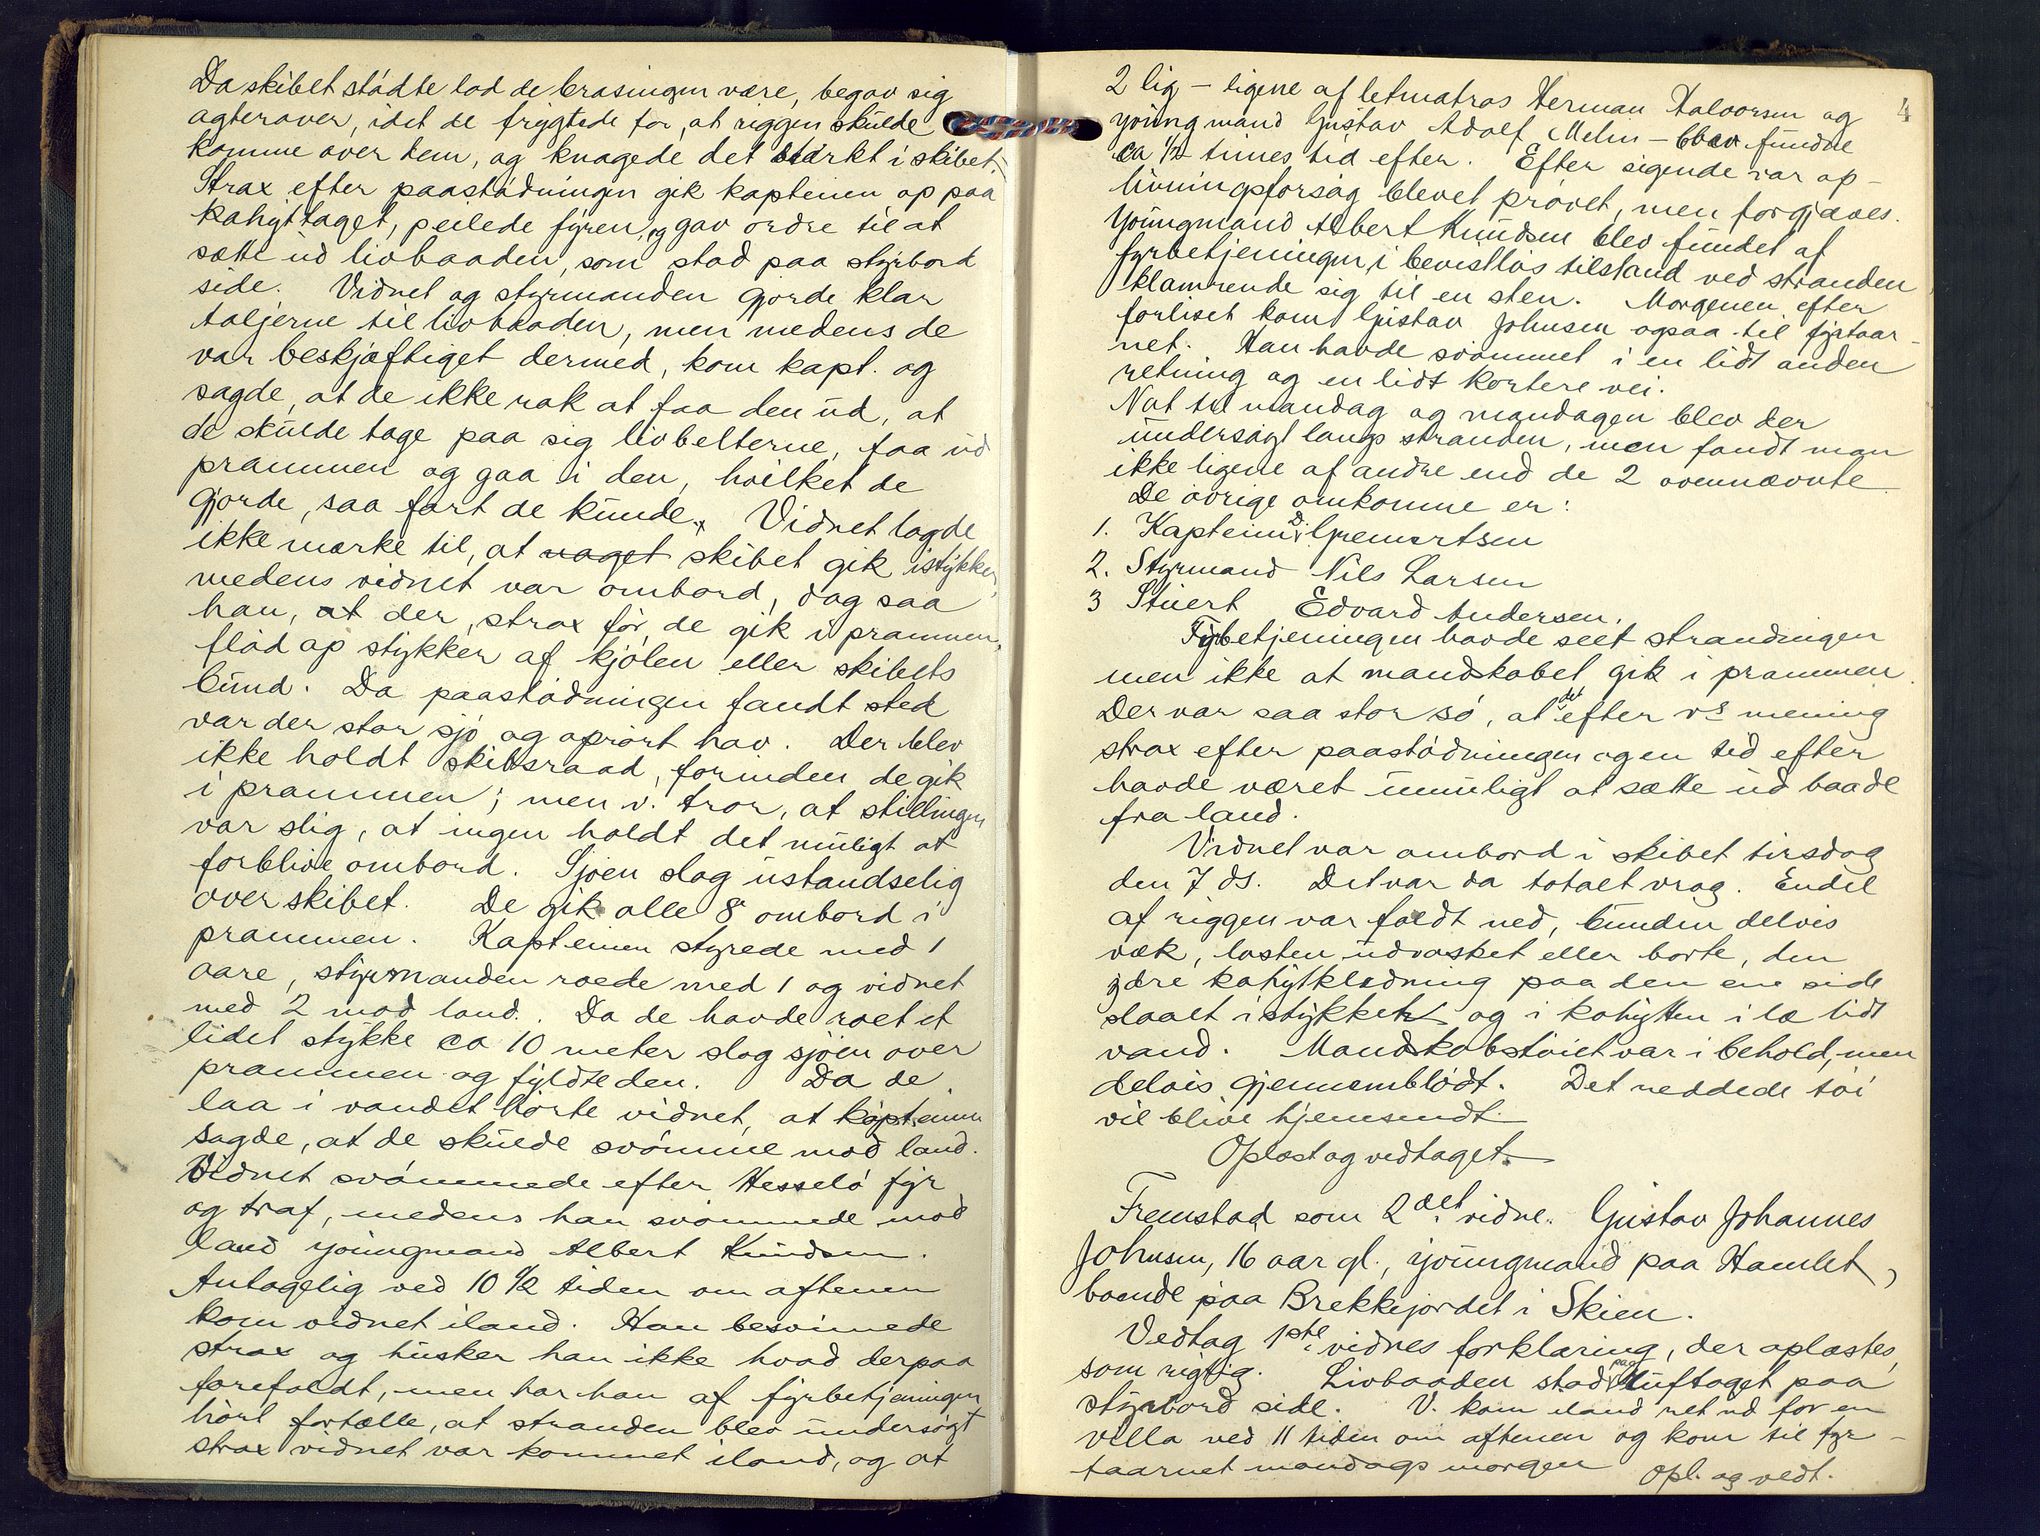 Da skibet stødte lod de brasingen være, begav sig
agterover, idet de frygtede for, at riggen skulde
komme over dem, og knagede det stærkt i skibet.
Strax efter paastødningen gik kapteinen op paa
kahyttaget, peilede fyren, og gav ordre til at
sætte ud livbaaden, som stod paa styrbord
side. Vidnet og styrmanden gjorde klar
taljerne til livbaaden, men medens de
var beskjæftiget dermed, kom kapt. og
sagde, at de ikke rak at faa den ud, at
de skulde tage paa sig livbelterne, faa ud
prammen og gaa i den, hvilket de
gjorde, saa fort de kunde. Vidnet lagde
ikke mærke til, at noget skibet gik istykker,
medens vidnet var ombord, dog saa
han, at der, strax før de gik i prammen,
flød op stykker af kjølen eller skibets
bund. Da paastødningen fandt sted
var der stor sjø og oprørt hav. Der blev
ikke holdt skibsraad, forinden de gik
i prammen; men v. tror, at stillingen
var slig, at ingen holdt det muligt at
forblive ombord. Sjøen slog ustandselig
over skibet. De gik alle 8 ombord i
prammen. Kapteinen styrede med 1
aare, styrmanden roede med 1 og vidnet
med 2 mod land. Da de havde roet et
lidet stykke ca 10 meter slog sjøen over
prammen og fyldte den. Da de
laa i vandet hørte vidnet, at kapteinen
sagde, at de skulde svømme mod land.
Vidnet svømmede efter Hesselø fyr
og traf, medens han svømmede mod
land youngmand Albert Knudsen.
Antagelig ved 10 1/2 tiden om aftenen
kom vidnet iland. Han besvimede
strax og husker han ikke hvad derpaa
forefaldt, men har han af fyrbetjeningen
hørt fortælle, at stranden blev undersøgt
strax vidnet var kommet iland, og at
4
2 lig - ligene af letmatros Herman Halvorsen og
youngmand Gustav Adolf Melin - blev fundne
ca 1/2 times tid efter. Efter sigende var op-
livningsforsøg blevet prøvet, men forgjæves.
Youngmand Albert Knudsen blev fundet af
fyrbetjeningen i bevistløs tilstand ved stranden,
klamrende sig til en sten. Morgenen efter
forliset kom Gustav Johnsen ogsaa til fyrtaar-
net. Han havde svømmet i en lidt anden
retning og en lidt kortere vei.
Nat til mandag og mandagen blev der
undersøgt langs stranden, men fandt man
ikke ligene af andre end de 2 ovennævnte.
De øvrige omkomne er:
1. Kaptein D. Gremertsen
2. Styrmand Nils Larsen
3 Stuert Edvard Andersen.
Fyrbetjeningen havde seet strandingen
men ikke at mandskabet gik i prammen.
Der var saa stor sø, at det efter vs mening
strax efter paastødningen og en tid efter
havde været umuligt at sætte ud baade
fra land.
Vidnet var ombord i skibet tirsdag
den 7 ds. Det var da totalt vrag. Endel
af riggen var faldt ned, bunden delvis
væk, lasten udvasket eller borte, den
ydre kahytklædning paa den ene side
slaaet istykker og i kahytten i læ lidt
vand. Mandskabstøiet var i behold, men
delvis gjennemblødt. Det reddede tøi
vil blive hjemsendt.
Oplæst og vedtaget.
Fremstod som 2det vidne. Gustav Johannes
Johnsen, 16 aar gl., youngmand paa Hamlet,
boende paa Brekkejordet i Skien.
Vedtag 1ste vidnes forklaring, der oplæstes,
som rigtig. Livbaaden stod paa luftaget paa
styrbord side. V. kom iland ret ud for en
villa ved 11 tiden om aftenen og kom til fyr-
taarnet mandags morgen Opl. og vedt.